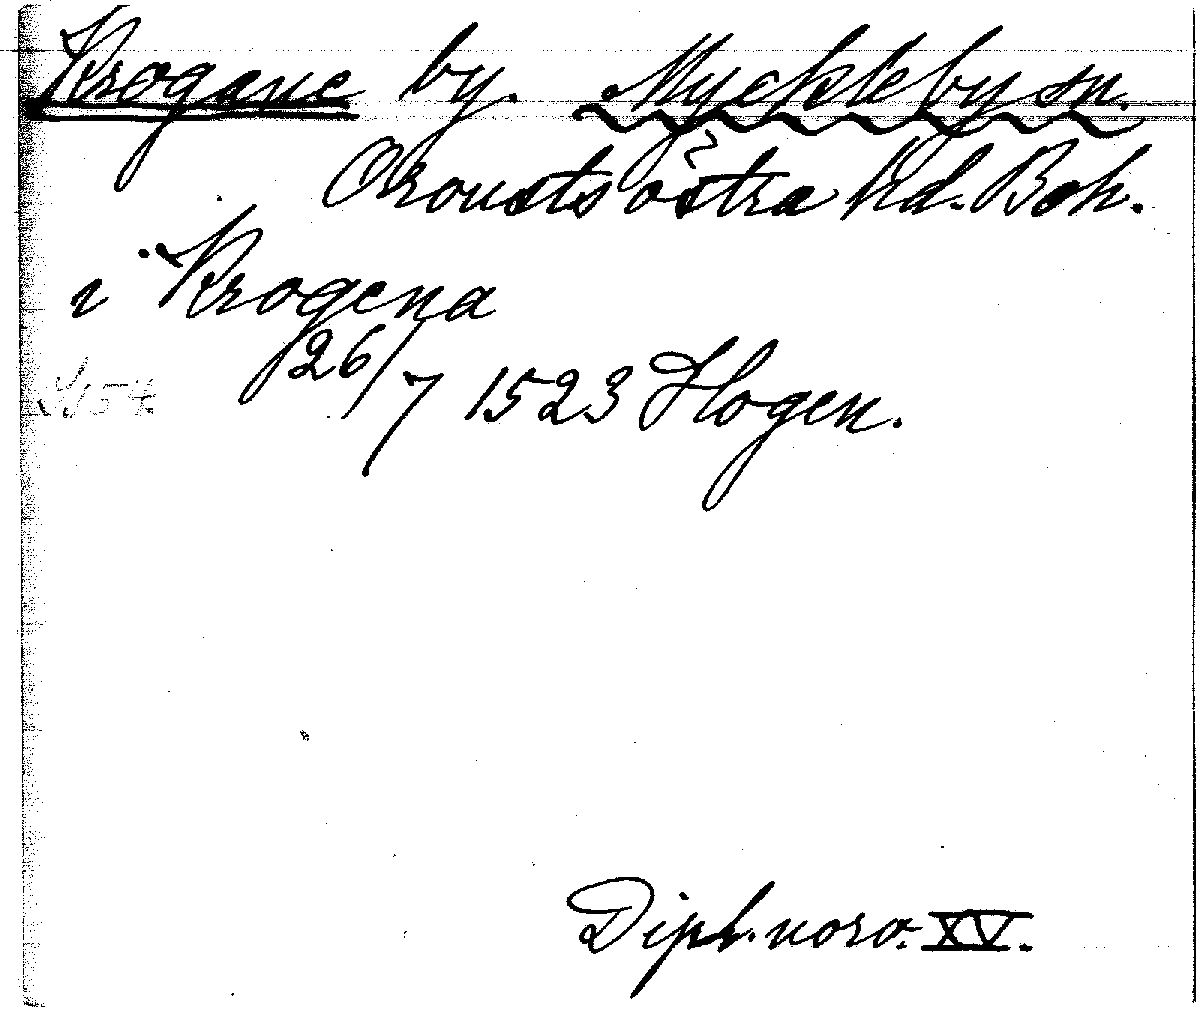 Krogane by. Myckleby sn.
Orousts östra hd. Boh.
i Krogena
26/7 1523 Hogen.
S. 154.
Dipl. norv. XV.